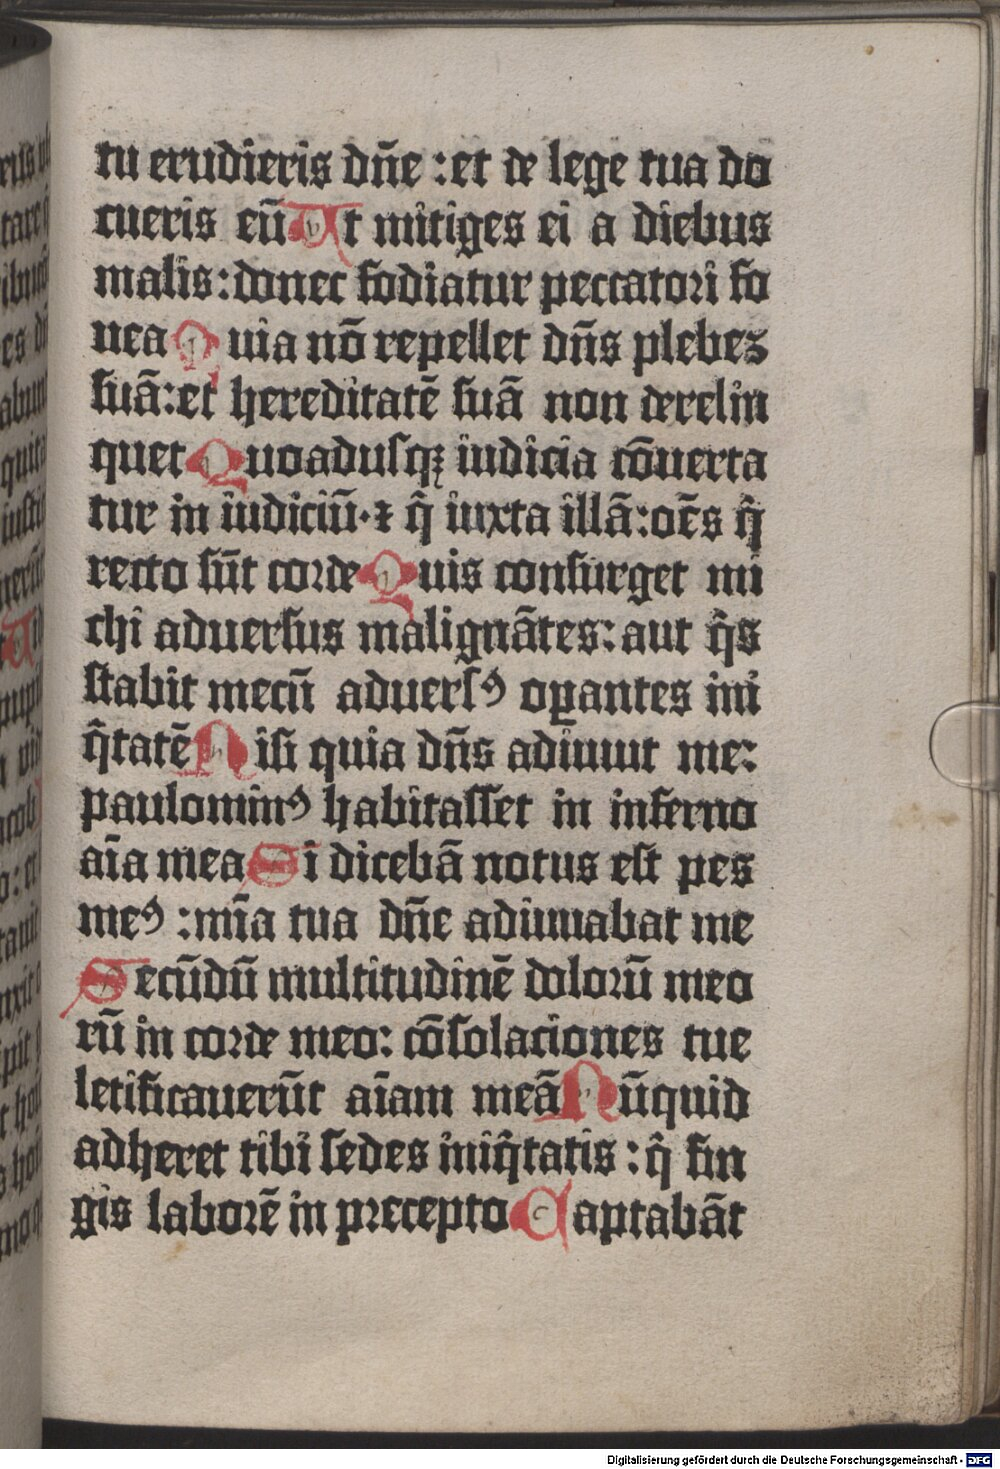 tu erudieris dñe : et de lege tua do
cueris eū Ut mitiges ei a diebus
malis : donec fodiatur peccatori fo
uea Quia nō repellet dñs plebez
suā : et hereditatē suā non derelin
quet Quoadusqꝫ iudicia cōuerta
tur in iudiciū · ⁊ q̄ iuxta illā : oēs q̄
recto sūt corde Quis consurget mi
chi aduersus malignātes : aut q̄s
stabit mecū aduersꝰ oꝑantes ini
q̄tatē Nisi quia dñs adiuuit me :
paulominꝰ habitasset in inferno
aīa mea Si dicebā motus est pes
meꝰ : mīa tua dñe adiuuabat me
Secūdū multitudinē dolorū meo
rū in corde meo : cōsolaciones tue
letificauerūt aīam meā Nūquid
adheret tibi sedes iniq̄tatis : q̄ fin
gis laborē in precepto Captabāt
Digitalisierung gefördert durch die Deutsche Forschungsgemeinschaft - DFG